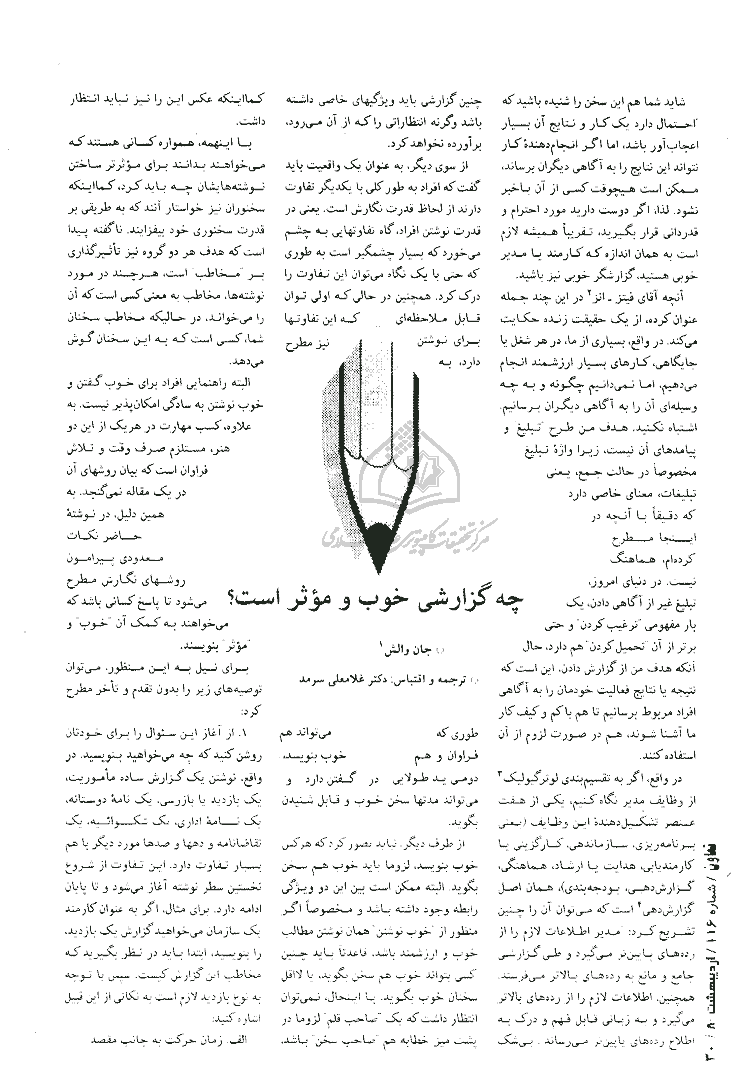 چه گزارشی خوب و مؤثر است؟
○ جان والش۱
○ ترجمه و اقتباس: دکتر غلامعلی سرمد
شاید شما هم این سخن را شنیده باشید که
احتمال دارد یک کار و نتایج آن بسیار
اعجاب‌آور باشد، اما اگر انجام‌دهندهٔ کار
نتواند این نتایج را به آگاهی دیگران برساند،
ممکن است هیچوقت کسی از آن باخبر
نشود. لذا، اگر دوست دارید مورد احترام و
قدردانی قرار بگیرید، تقریباً همیشه لازم
است به همان اندازه که کارمند یا مدیر
خوبی هستید، گزارشگر خوبی نیز باشید.
آنچه آقای فیتز ـ انز۲ در این چند جمله
عنوان کرده، از یک حقیقت زنده حکایت
می‌کند. در واقع، بسیاری از ما، در هر شغل یا
جایگاهی، کارهای بسیار ارزشمند انجام
می‌دهیم، اما نمی‌دانیم چگونه و به چه
وسیله‌ای آن را به آگاهی دیگران برسانیم.
اشتباه نکنید. هدف من طرح "تبلیغ" و
پیامدهای آن نیست، زیرا واژهٔ تبلیغ
مخصوصاً در حالت جمع، یعنی
تبلیغات، معنای خاصی دارد
که دقیقاً با آنچه در
اینجا مطرح
کرده‌ام، هماهنگ
نیست. در دنیای امروز،
تبلیغ غیر از آگاهی دادن، یک
بار مفهومی "ترغیب کردن" و حتی
برتر از آن "تحمیل کردن" هم دارد، حال
آنکه هدف من از گزارش دادن، این است که
نتیجه یا نتایج فعالیت خودمان را به آگاهی
افراد مربوط برسانیم تا هم با کم و کیف کار
ما آشنا شوند، هم در صورت لزوم از آن
استفاده کنند.
در واقع، اگر به تقسیم‌بندی لوترگیولیک۳
از وظایف مدیر نگاه کنیم، یکی از هفت
عنصر تشکیل‌دهندهٔ این وظایف (یعنی
برنامه‌ریزی، سازماندهی، کارگزینی یا
کارمندیابی، هدایت یا ارشاد، هماهنگی،
گزارش‌دهی، بودجه‌بندی)، همان اصل
گزارش‌دهی۴ است که می‌توان آن را چنین
تشریح کرد: "مدیر اطلاعات لازم را از
رده‌های پایین‌تر می‌گیرد و طی گزارشی
جامع و مانع به رده‌های بالاتر می‌فرستد.
همچنین، اطلاعات لازم را از رده‌های بالاتر
می‌گیرد و به زبانی قابل فهم و درک به
اطلاع رده‌های پایین‌تر می‌رساند." بی‌شک
چنین گزارشی باید ویژگیهای خاصی داشته
باشد وگرنه انتظاراتی را که از آن می‌رود،
برآورده نخواهد کرد.
از سوی دیگر، به عنوان یک واقعیت باید
گفت که افراد به طور کلی با یکدیگر تفاوت
دارند از لحاظ قدرت نگارش است. یعنی در
قدرت نوشتن افراد، گاه تفاوتهایی به چشم
می‌خورد که بسیار چشمگیر است به طوری
که حتی با یک نگاه می‌توان این تفاوت را
درک کرد. همچنین در حالی که اولی توان
قابل ملاحظه‌ای که این تفاوتها
برای نوشتن نیز مطرح
دارد، به
طوری که می‌تواند هم
فراوان و هم خوب بنویسد،
دومی ید طولایی در گفتن دارد و
می‌تواند مدتها سخن خوب و قابل شنیدن
بگوید.
از طرف دیگر، نباید تصور کرد که هرکس
خوب بنویسد، لزوما باید خوب هم سخن
بگوید. البته ممکن است بین این دو ویژگی
رابطه وجود داشته باشد و مخصوصاً اگر
منظور از "خوب نوشتن" همان نوشتن مطالب
خوب و ارزشمند باشد، قاعدتاً باید چنین
کسی بتواند خوب هم سخن بگوید، یا لااقل
سخنان خوب بگوید. با اینحال، نمی‌توان
انتظار داشت که یک "صاحب قلم" لزوما در
پشت میز خطابه هم "صاحب سخن" باشد،
کمااینکه عکس این را نیز نباید انتظار
داشت.
با اینهمه، همواره کسانی هستند که
می‌خواهند بدانند برای مؤثرتر ساختن
نوشته‌هایشان چه باید کرد، کمااینکه
سخنوران نیز خواستار آنند که به طریقی بر
قدرت سخنوری خود بیفزایند. ناگفته پیدا
است که هدف هر دو گروه نیز تأثیرگذاری
بر "مخاطب" است، هرچند در مورد
نوشته‌ها، مخاطب به معنی کسی است که آن
را می‌خواند، در حالیکه مخاطب سخنان
شما، کسی است که به این سخنان گوش
می‌دهد.
البته راهنمایی افراد برای خوب گفتن و
خوب نوشتن به سادگی امکان‌پذیر نیست. به
علاوه، کسب مهارت در هریک از این دو
هنر، مستلزم صرف وقت و تلاش
فراوان است که بیان روشهای آن
در یک مقاله نمی‌گنجد. به
همین دلیل، در نوشتهٔ
حاضر نکات
معدودی پیرامون
روشهای نگارش مطرح
می‌شود تا پاسخ کسانی باشد که
می‌خواهند به کمک آن "خوب" و
"مؤثر" بنویسند.
برای نیل به این منظور، می‌توان
توصیه‌های زیر را بدون تقدم و تأخر مطرح
کرد:
۱. از آغاز این سئوال را برای خودتان
روشن کنید که چه می‌خواهید بنویسید. در
واقع، نوشتن یک گزارش ساده مأموریت،
یک بازدید یا بازرسی، یک نامهٔ دوستانه،
یک نامهٔ اداری، یک شکوائیه، یک
تقاضانامه و دهها و صدها مورد دیگر با هم
بسیار تفاوت دارد. این تفاوت از شروع
نخستین سطر نوشته آغاز می‌شود و تا پایان
ادامه دارد. برای مثال، اگر به عنوان کارمند
یک سازمان می‌خواهید گزارش یک بازدید،
را بنویسید، ابتدا باید در نظر بگیرید که
مخاطب این گزارش کیست. سپس با توجه
به نوع بازدید لازم است به نکاتی از این قبیل
اشاره کنید:
الف. زمان حرکت به جانب مقصد
مرکز تحقیقات کامپیوتری علوم اسلامی
تعاون / شماره ۱۱۶ / اردیبهشت ۸۰ / ۳۰